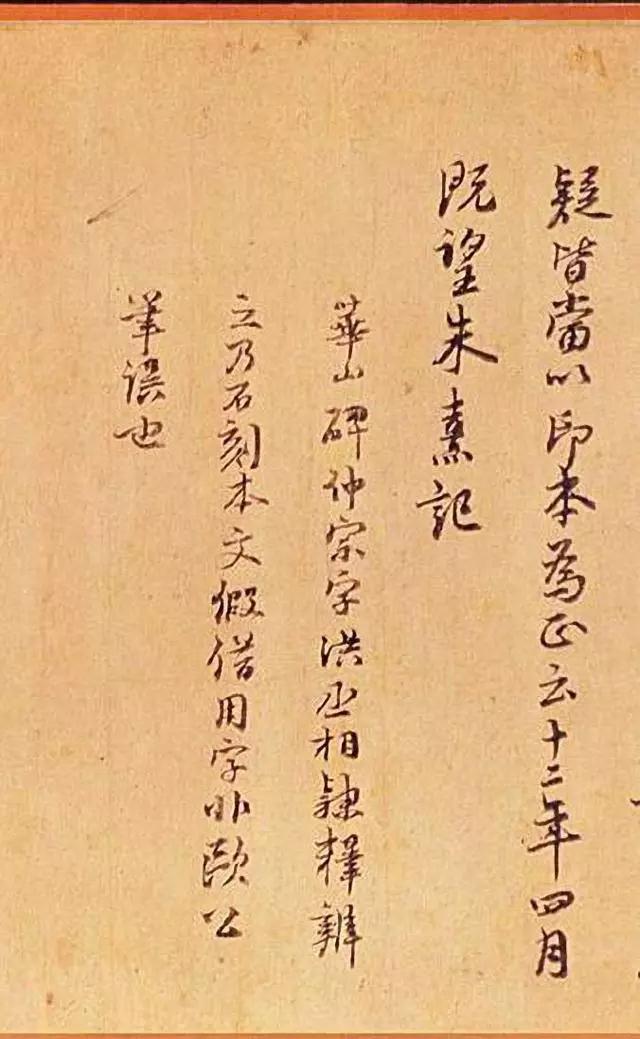 疑皆當以印本為正云十二年四月
既望朱熹記
華山碑仲宗字洪丞相隸釋辨
之乃石刻本文假借用字非歐公
筆誤也